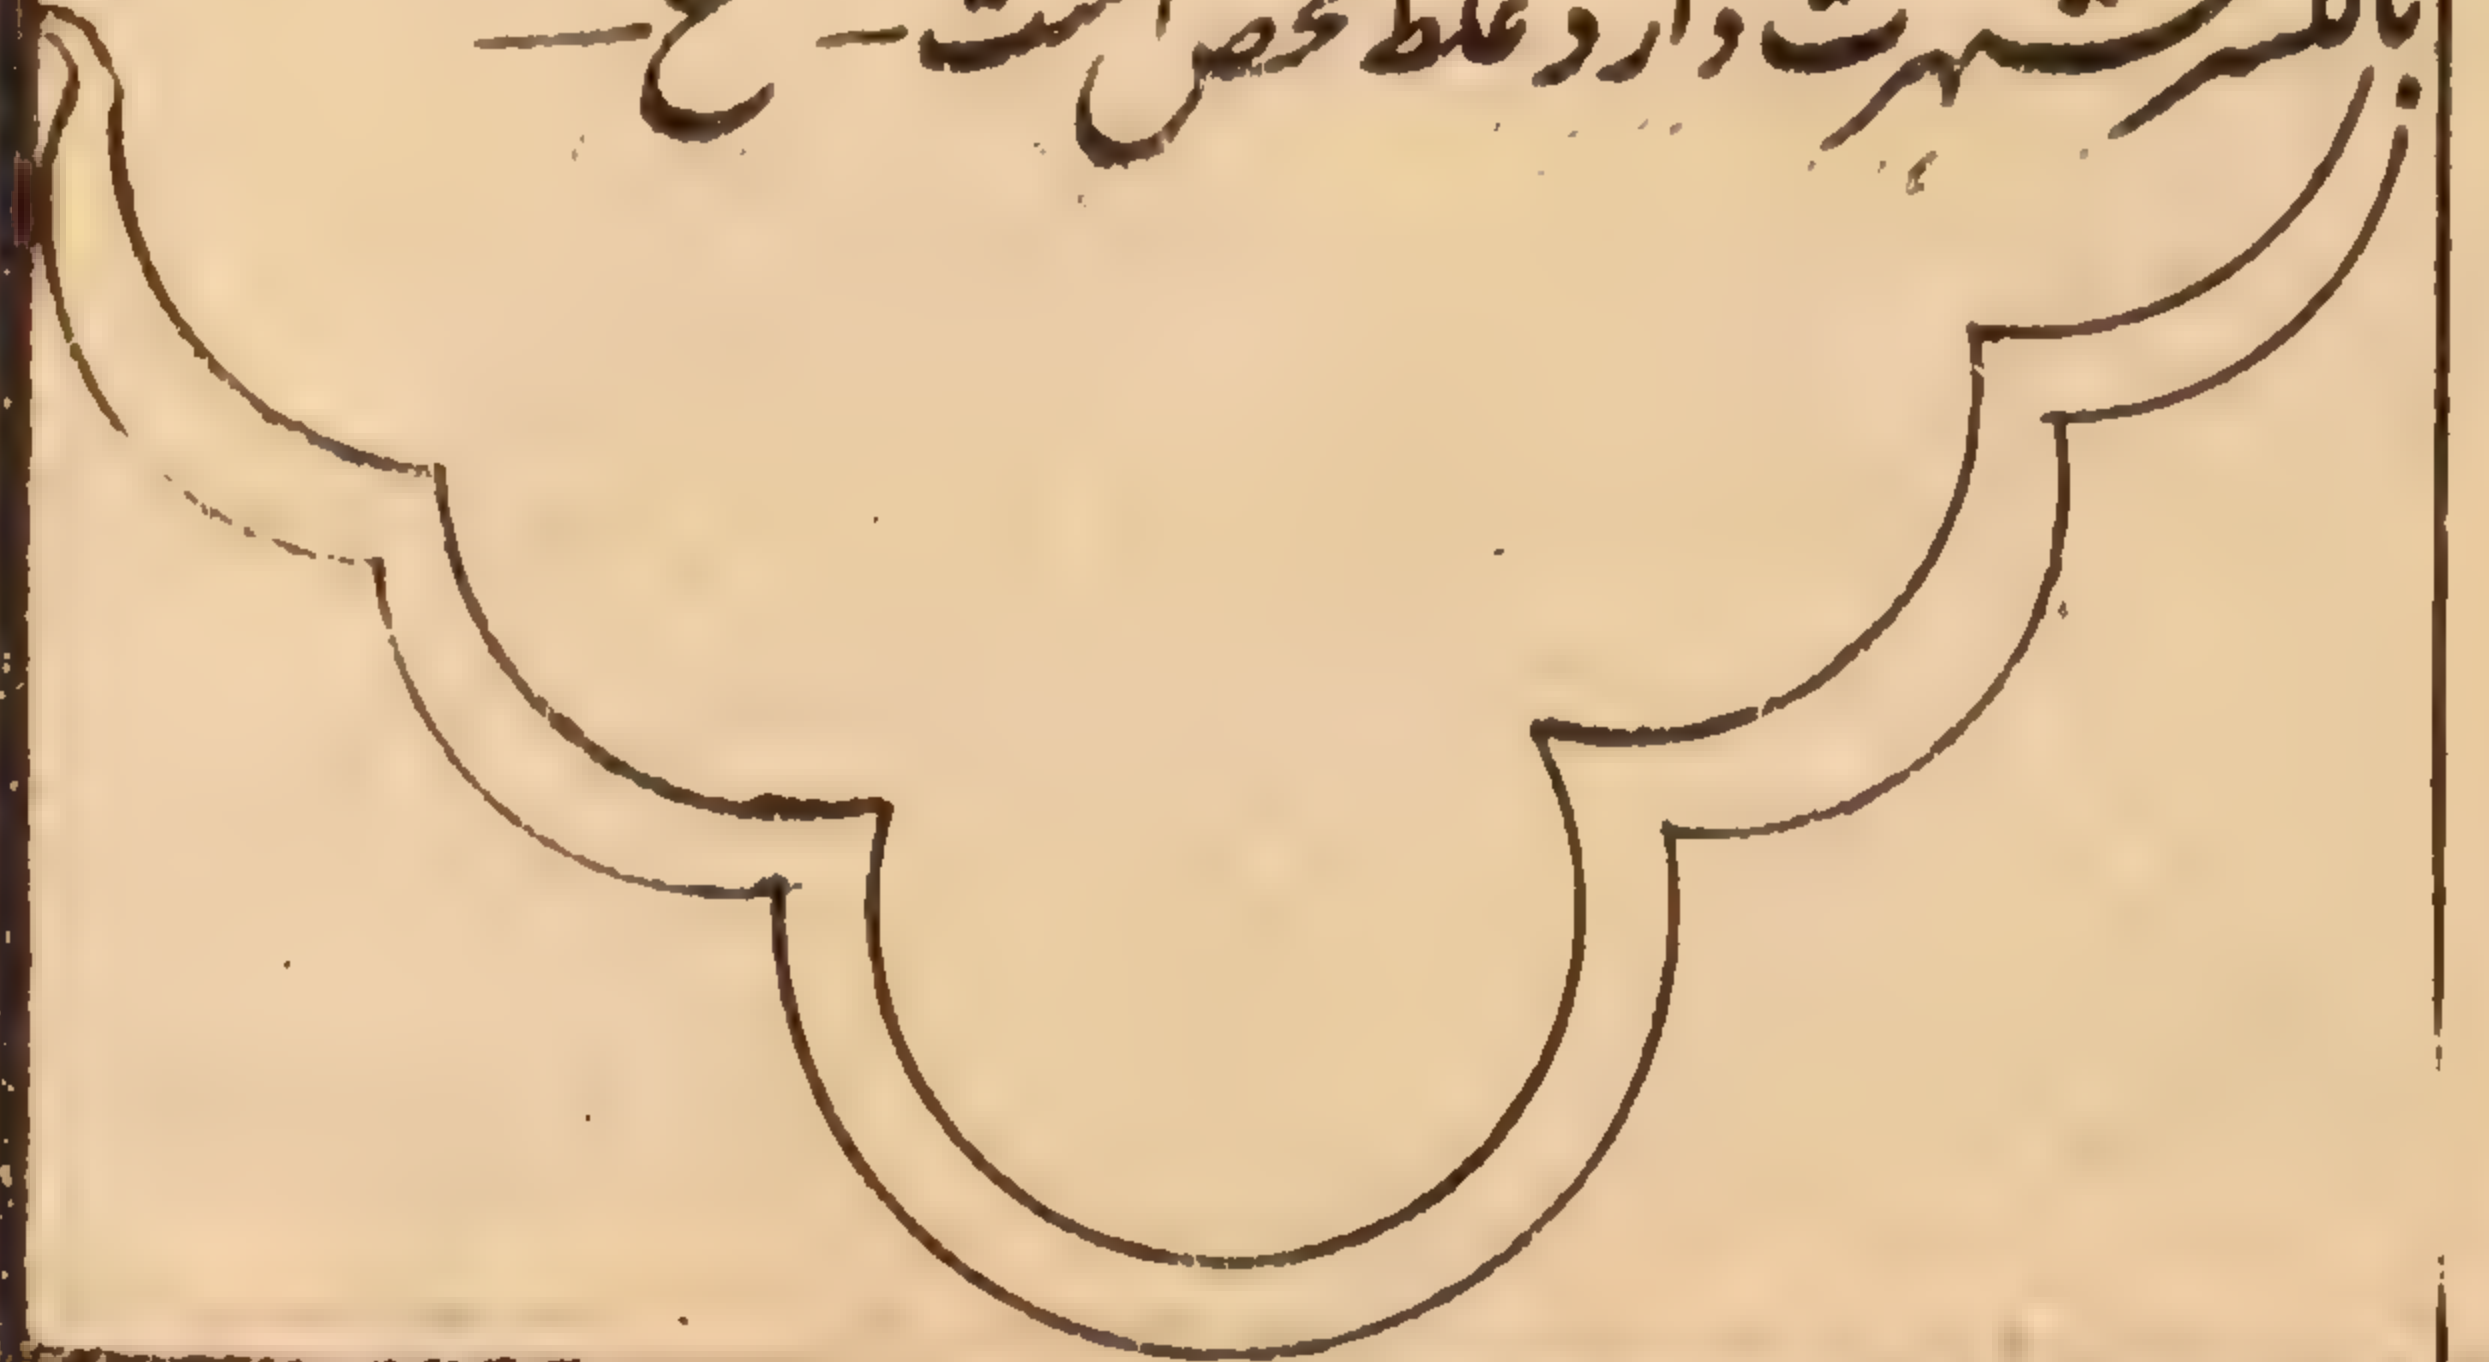 بالکسر شہرت دارد غلط محض است — ح —